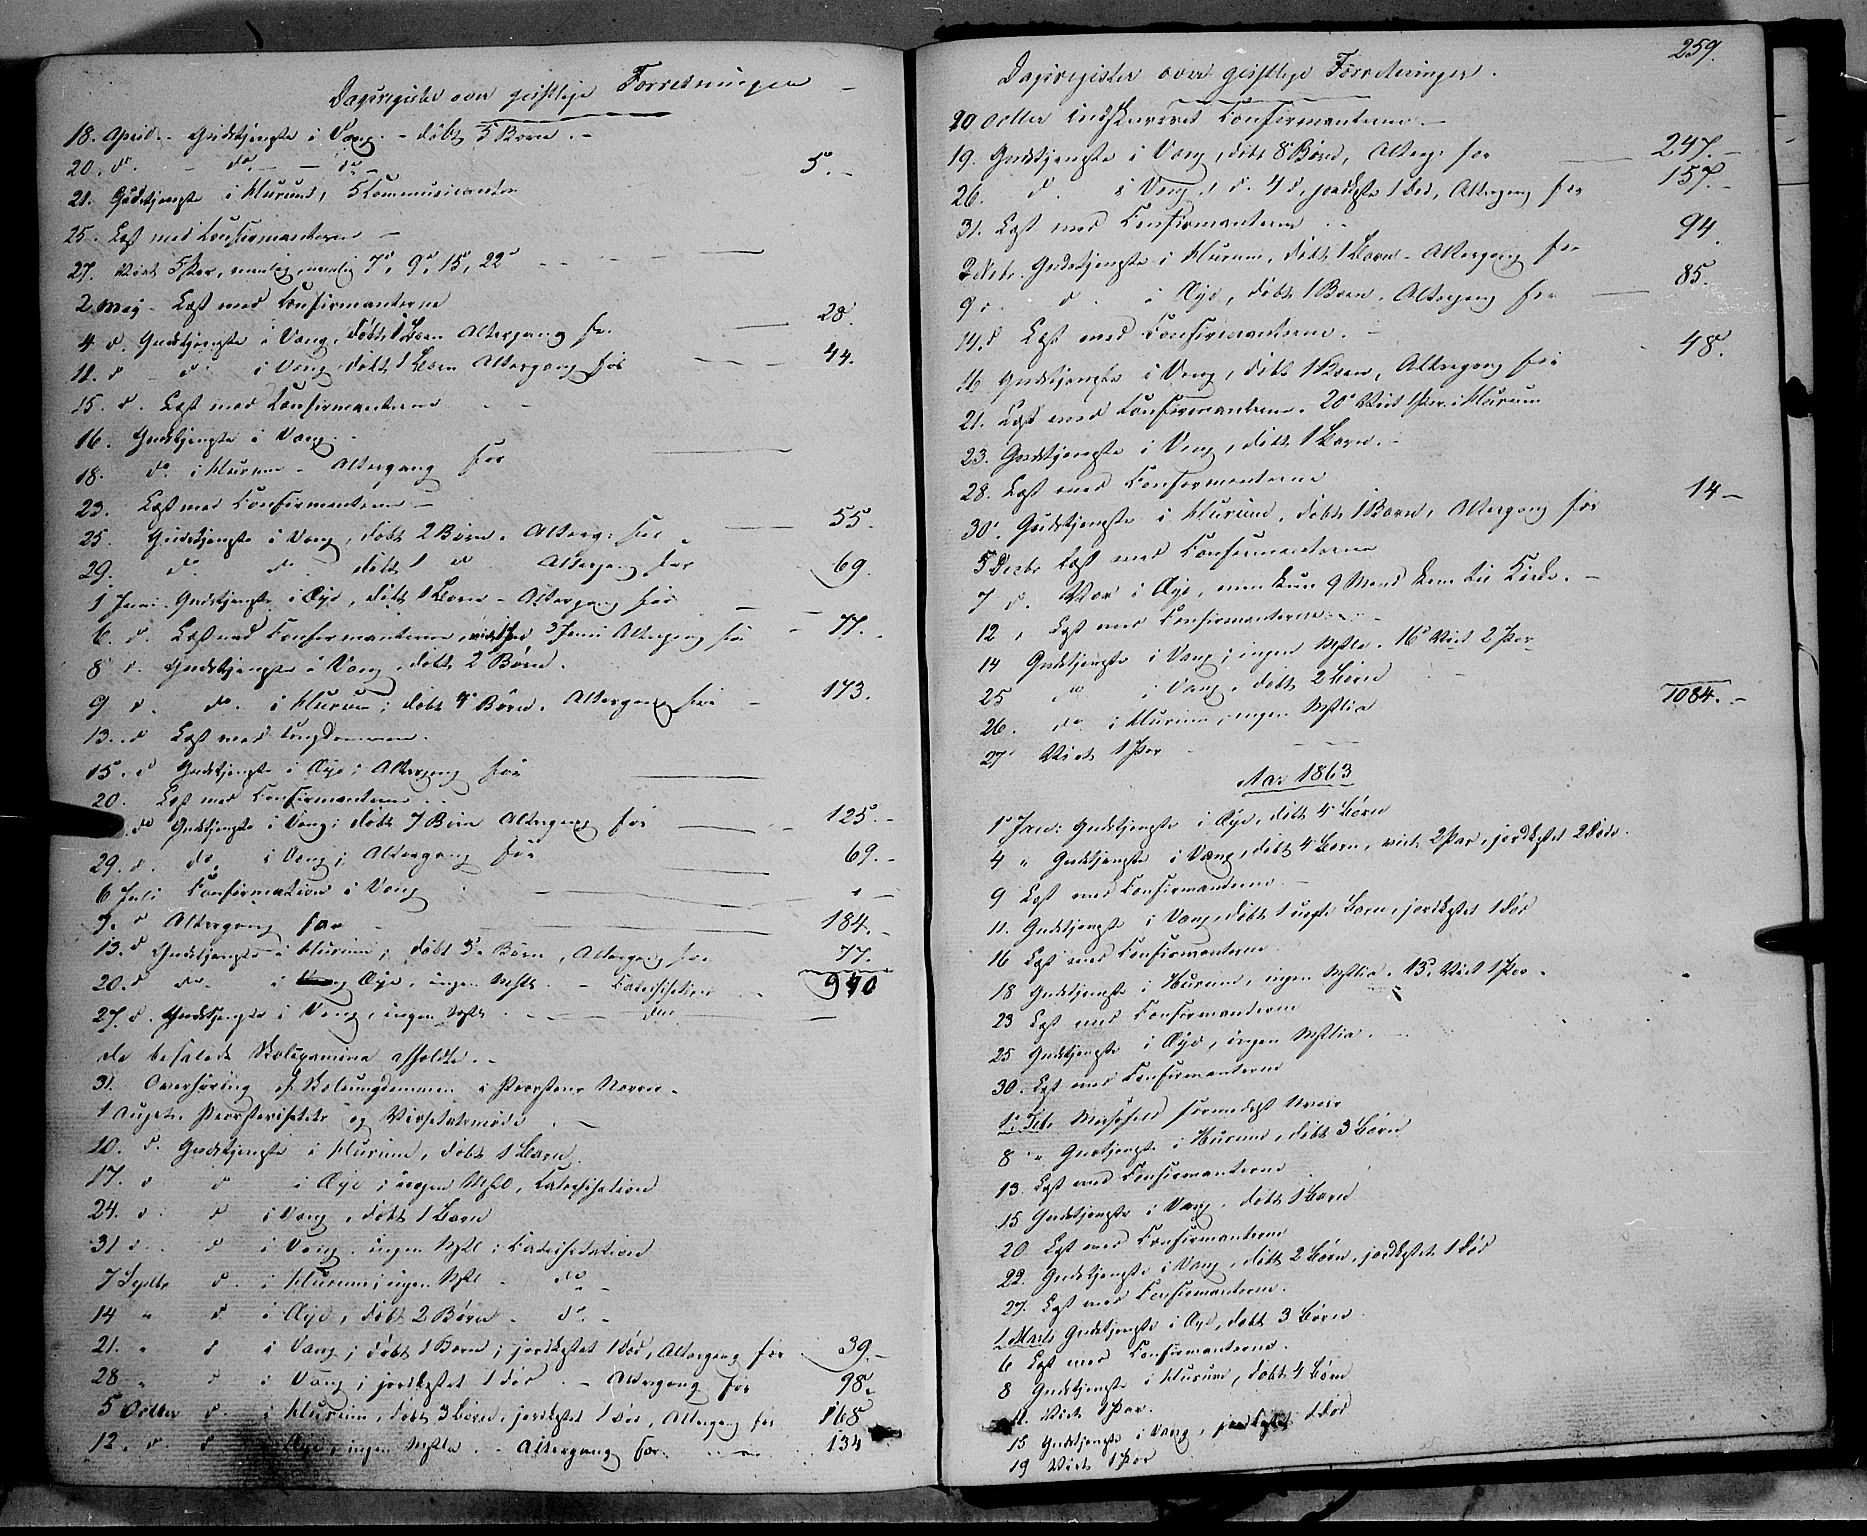 Dagsregister over geistlige Forretninger
18. April - Gudstjeneste i Vang. - døbt 5 Børn. -
20. do. - do. - - do. - 5. -
21. Gudstjeneste i Hurum, 5 Kommunicanter
25. Læst med Confirmanterne -
27. Viet 5 Par, nemlig 7de, 9de, 15de, 22de
2 May - Læst med Confirmanterne
4 d. Gudstjeneste i Vang, døbt 1 Barn Altergang for 28.
11. d - do. i Vang, døbt 1 Barn Altergang for 44.
15. d. Læst med Confirmanterne - -
16. Gudstjeneste i Vang. -
18. do. i Hurum - Altergang for
23. Læst med Confirmanterne -
25. Gudstjeneste i Vang, døbt 2 Børn. Alterg: for 55.
29. do. do. døbt 1 do Altergang for 69.
1 Juni. Gudstjeneste i Øye, døbt 1 Barn - Altergang for
6. d. Læst med Confirmanterne, 3 Juni Altergang for 77. -
8 d. Gudstjeneste i Vang, døbt 2 Børn.
9 d. do. i Hurum; døbt 4 Børn. Altergang for - 173.
13. d Læst med Ungdommen.
15. d Gudstjeneste i Øye; Altergang for
20. Læst med Confirmanterne . .
do Gudstjeneste i Vang; døbt 7 Børn Altergang for 125. -
29. d. do. i Vang; Altergang for 69. -
6 Juli Confirmation i Vang
7. d Altergang for 184. -
13. d Gudstjeneste i Hurum; døbt 5 Børn, Altergang for 77. -
20. d do. i Øye, ingen Mskl. - Catechisation 940
27. d. Gudstjeneste i Vang, ingen - do
de befalede Skoleexamina afholdte. -
31. Overhøring af Skoleungdommen i Provstens Nærv. -
1 August. Provstevisitats og Visitatsmøde . -
10. d. Gudstjeneste i Hurum, døbt 1 Barn
17. d d i Øye; ingen, Catechisation
24. d. d i Vang, døbt 1 Barn
31 d. d i Vang. ingen; Catechisation
7 Septbr d. i Hurum; ingen - do -
14 " d i Øye, døbt 2 Børn - do. -
21. " d i Vang; døbt 1 Barn; jordkastet 1 død, Altergang for 39. -
28 " d i Vang; jordkastet 1 død. - Altergang for 98.
5 Octbr d. i Hurum, døbt 3 Børn, jordkastet 1 død, Altergang for 168
12. d. d Øye, ingen - Altergang for. 134
259.
Dagsregister over geistlige Forretninger.
20 Octbr indskrevet Confirmanterne -
19. Gudstjeneste i Vang, døbt 8 Børn, Alterg: for 247. -
26. d. i Vang, d. 4 d, jordkastet 1 død, Altergang for 157. -
31. Læst med Confirmanterne . . 94.
2 Novbr. Gudstjeneste i Hurum, døbt 1 Barn - Altergang for
9 : d. i Øye, døbt 1 Barn. Altergang for 85.
14. d Læst med Confirmanterne. -
16 Gudstjeneste i Vang, døbt 1 Barn, Altergang for 48.
21. Læst med Confirmanterne. 20 Viet 1 Par i Hurum
23. Gudstjeneste i Vang, døbt 1 Barn. -
28. Læst med Confirmanterne
30. Gudstjeneste i Hurum, døbt 1 Barn, Altergang for 14 -
5 Decbr Læst med Confirmanterne
7 d. Var i Øye, men kun 9 Mand kom til Kirke. -
12 , Læst med Confirmanterne . -
14 Gudstjeneste i Vang; ingen. 16 Viet 2 Par
25 do i Vang, døbt 2 Børn
26. do i Hurum, ingen 1084. -
27 Viet 1 Par
Aar 1863
1 Jan: Gudstjeneste i Øye, døbt 4 Børn
4 " Gudstjeneste i Vang, døbt 4 Børn, viet 2 Par, jordkastet 2 Døde.
9 Læst med Confirmanterne -
11. Gudstjeneste i Vang, døbt 1 uægte Barn, jordkastet 1 død
16 Læst med Confirmanterne
18 Gudstjeneste i Hurum, ingen. 13. Viet 1 Par -
23 Læst med Confirmanterne
25 Gudstjeneste i Øye, ingen. -
30. Læst med Confirmanterne
1 Feb. Messefald formedelst Uveir
8 " Gudstjeneste i Hurum, døbt 3 Børn
13. Læst med Confirmanterne
15 Gudstjeneste i Vang, døbt 1 Barn
20. Læst med Confirmanterne
22. Gudstjeneste i Vang, døbt 2 Børn, jordkastet 1 død
27. Læst med Confirmanterne.
1 Marts Gudstjeneste i Øye, døbt 3 Børn
6 Læst med Confirmanterne.
8 Gudstjeneste i Hurum, døbt 4 Børn
11. Viet 1 Par.
15 Gudstjeneste i Vang, jordkastet 1 død
19 Viet 1 Par